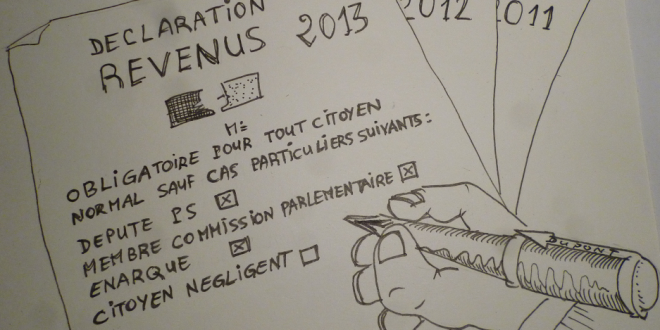 DECLARATION
REVENUS 2013
2012
2011
ME
OBLIGATOIRE POUR TOUT CITOYEN
NORMAL SAUF CAS PARTICULIERS SUIVANTS:
DEPUTE PS
MEMBRE COMMISSION PARLEMENTAIRE
ENARQUE
CITOYEN NEGLIGENT
DUPONT